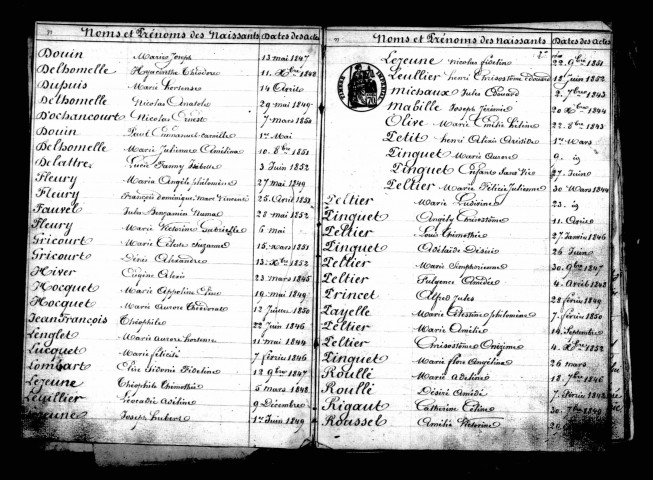 Noms et Prénoms des Naissants Dates des Actes
Douin Marie Joseph 13 mai 1847
Delhomelle Hyacinthe Théodore 11. Xbre 1848
Dupuis Marie hortense 14 Avril
Delhomelle Nicolas Anatole 29 mai 1849
D'ochancourt Nicolas Ernest 7 mars 1850
Douin Paul Emmanuel Camille 1er Mai
Delhomelle Marie Julienne Emélina 10. 8bre 1851
Delattre Lucie Fanny 3 Juin 1852
Fleury Maria Angèle philomène 27 mai 1849
Fleury François Dominique Marc Vincent 25 Avril 1851
Fauvel Jules Benjamin Numa 28 mai 1852
Fleury Marie Victorine Gabrielle 6 mai
Gricourt Marie Céline Suzanne 15 mars 1851
Gricourt Désir Alexandre 13 Xbre 1852
Hiver Eugène Alexis 23 mars 1845
Hocquet Marie Appoline Elise 19 mai 1849
Hocquet Marie Aurore Théodorat 12 Juin 1850
Jean François Théophile 22 Juin 1846
Lenglet Marie Aurore hortense 11 mai 1844
Lucquet Marie félicité 7 février 1846
Lombart Elise Sidonie Fideline 12 9bre 1847
Lejeune Théophile Thimothée 5 mars 1848
Leuillier Léocadie Adeline 9 Décembre
Lejeune Joseph hubert 1er Juin 1849
Noms et Prénoms des Naissants Dates des Actes
Lejeune Nicolas fidelin 22 9bre 1851
Leullier henri Chrisostôme Edouard 18 Juin 1852
Michaux Jules Edouard 2. 7bre 1843
Mabille Joseph Jérémie 20 Xbre 1844
Olive Marie Emélie héline 22. 8bre 1843
Petit henri Olivier Aristide 1er Mars
Pinquet Marie Aurore 9. id
Pinquet Enfant Sans Vie 27 Juin
Peltier Marie Félicie Julienne 30 Mars 1844
Peltier Marie Ludivine 23. id
Pinquet Angély Chrisostôme 11 Avril
Peltier Louis Thimothée 27 Janvier 1846
Pinquet Adélaïde Désiré 26 Juin
Peltier Marie Simphorienne 30 9bre 1847
Peltier Fulgence Omédée 4 Avril 1848
Princet Alfred Jules 28 février 1849
Payelle Marie Célestine philomène 7 février 1850
Peltier Marie Amélie 14 Septembre
Peltier Chrisostôme Onézime 4 Xbre 1852
Pinquet Marie flore Angélina 26 mars
Roullé Marie Adeline 18. 7bre 1846
Roullé Désiré Amédé 7 février 1848
Rigaut Catherine Céline 30. 7bre 1849
Roussel Amélie Victorine